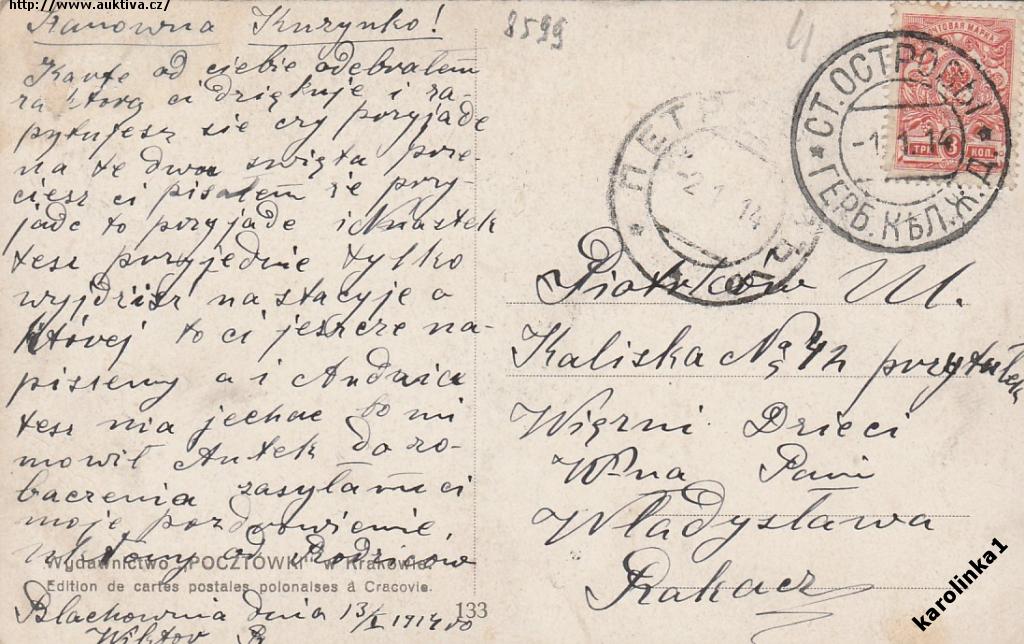 http://www.auktiva.cz/
Szanowna Kuzynko!
Kartę od ciebie odebrałem
za ktorą ci dziękuje i za-
pytujesz sie czy przyjade
na te dwa swięta prze-
ciesz ci pisałem że przy-
jade to przyjade i Nastek
tesz przyjedzie tylko
wyjdzisz na stacyje o
której to ci jeszcze na-
piszemy a i Andzia
tesz ma jechac bo mi
mowił Antek do zo-
baczenia zasyłam ci
moje pozdrowienie
od Rodziców
Wydawnictwo „POCZTÓWKI" w Krakowie.
Edition de cartes postales polonaises à Cracovie.
Blachownia dnia 13/I 1914
133
Wiktor R
8599
4
СТ. ОСТРОСЫ
ГЕРБ. КѢЛ. Ж. Д.
-1.1.14
ПЕТР
2 1 14
ТРИ 3 КОП.
Piotrków Ul.
Kaliska No 42 przytułek
Więrni Dzieci
W-na Pani
Władysława
Rakacz
karolinka1